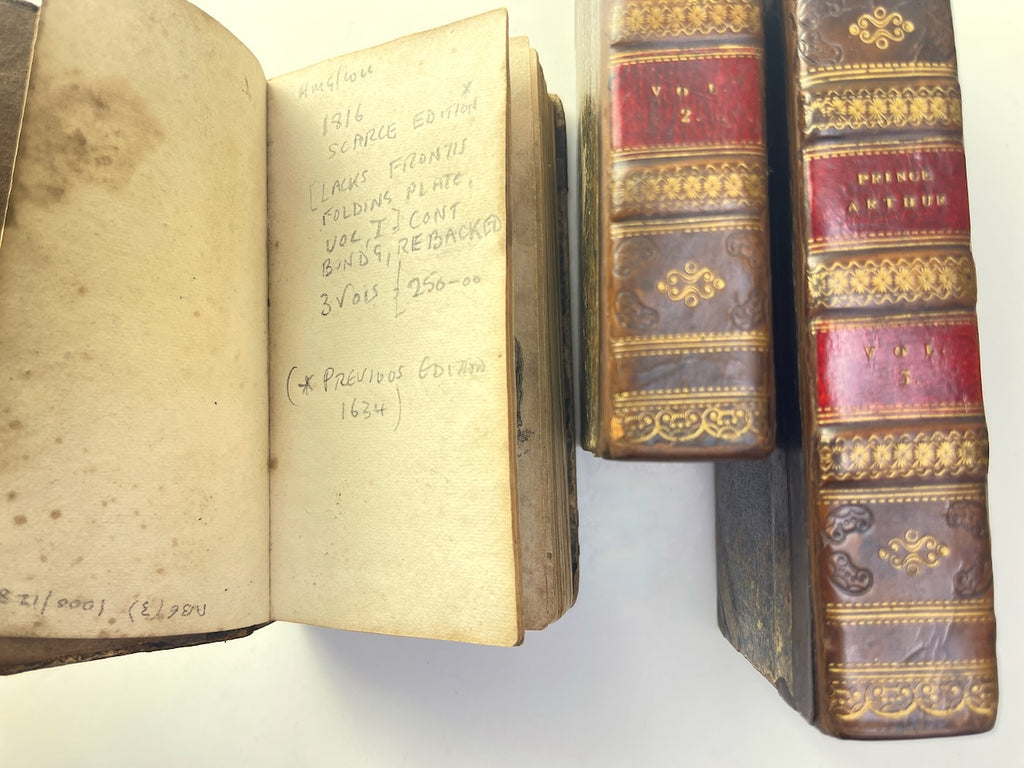 1816
SCARCE EDITION*
[LACKS FRONTIS
FOLDING PLATE,
VOL, I] CONT
BIND'G, REBACKED
3 VOLS { 250-00
(* PREVIOUS EDITION
1634)
VOL
2.
PRINCE
ARTHUR
VOL
3.